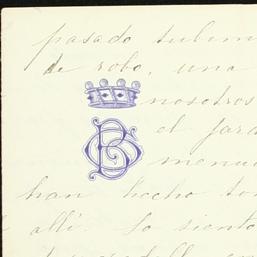 pasado tubim
de robo, una
nosotros
el jard
menud
han hecho to
allí. Lo siento